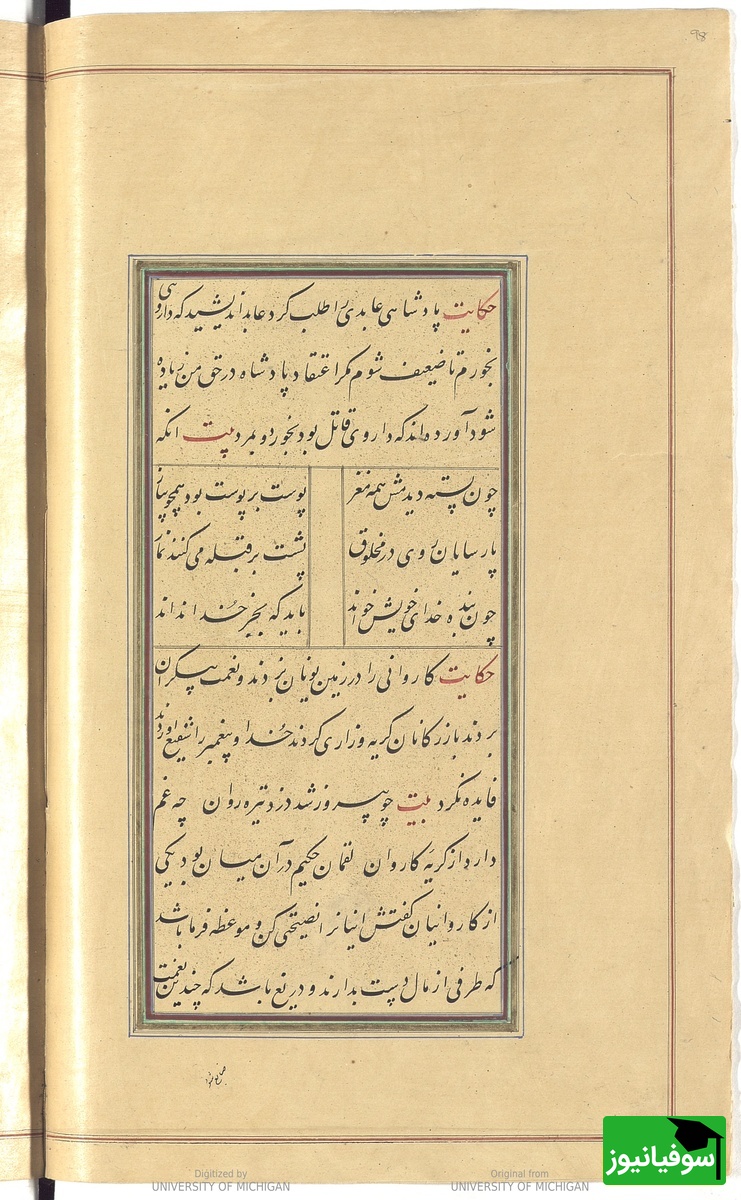 ۹۸
حکایت پادشاهی عابدی را طلب کرد عابد اندیشید که داروئی
بخورم تا ضعیف شوم مگر اعتقاد پادشاه در حق من زیاده
شود آورده‌اند که داروی قاتل بود بخورد و بمرد بیت انکه
چون پسته دیدمش همه مغز پوست بر پوست بود همچو پیاز
پارسایان روی در مخلوق پشت بر قبله می کنند نماز
چون بنده خدای خویش خواند باید که بجز خدا نداند
حکایت کاروانی را در زمین یونان بزدند و نعمت بیکران
بردند بازرکانان کریه و زاری کردند خدا و پیغمبر را شفیع آوردند
فایده نکرد بیت چو پیروز شد دزد تیره روان چه غم
دارد از کریه کاروان لقمان حکیم در آن میان بود یکی
از کاروانیان کفتش اینانرا نصیحتی کن و موعظه فرما باشد
که طرفی از مال دست بدارند و دریغ باشد که چندین نعمت
ضایع شود
سوفیانیوز
Digitized by
UNIVERSITY OF MICHIGAN
Original from
UNIVERSITY OF MICHIGAN